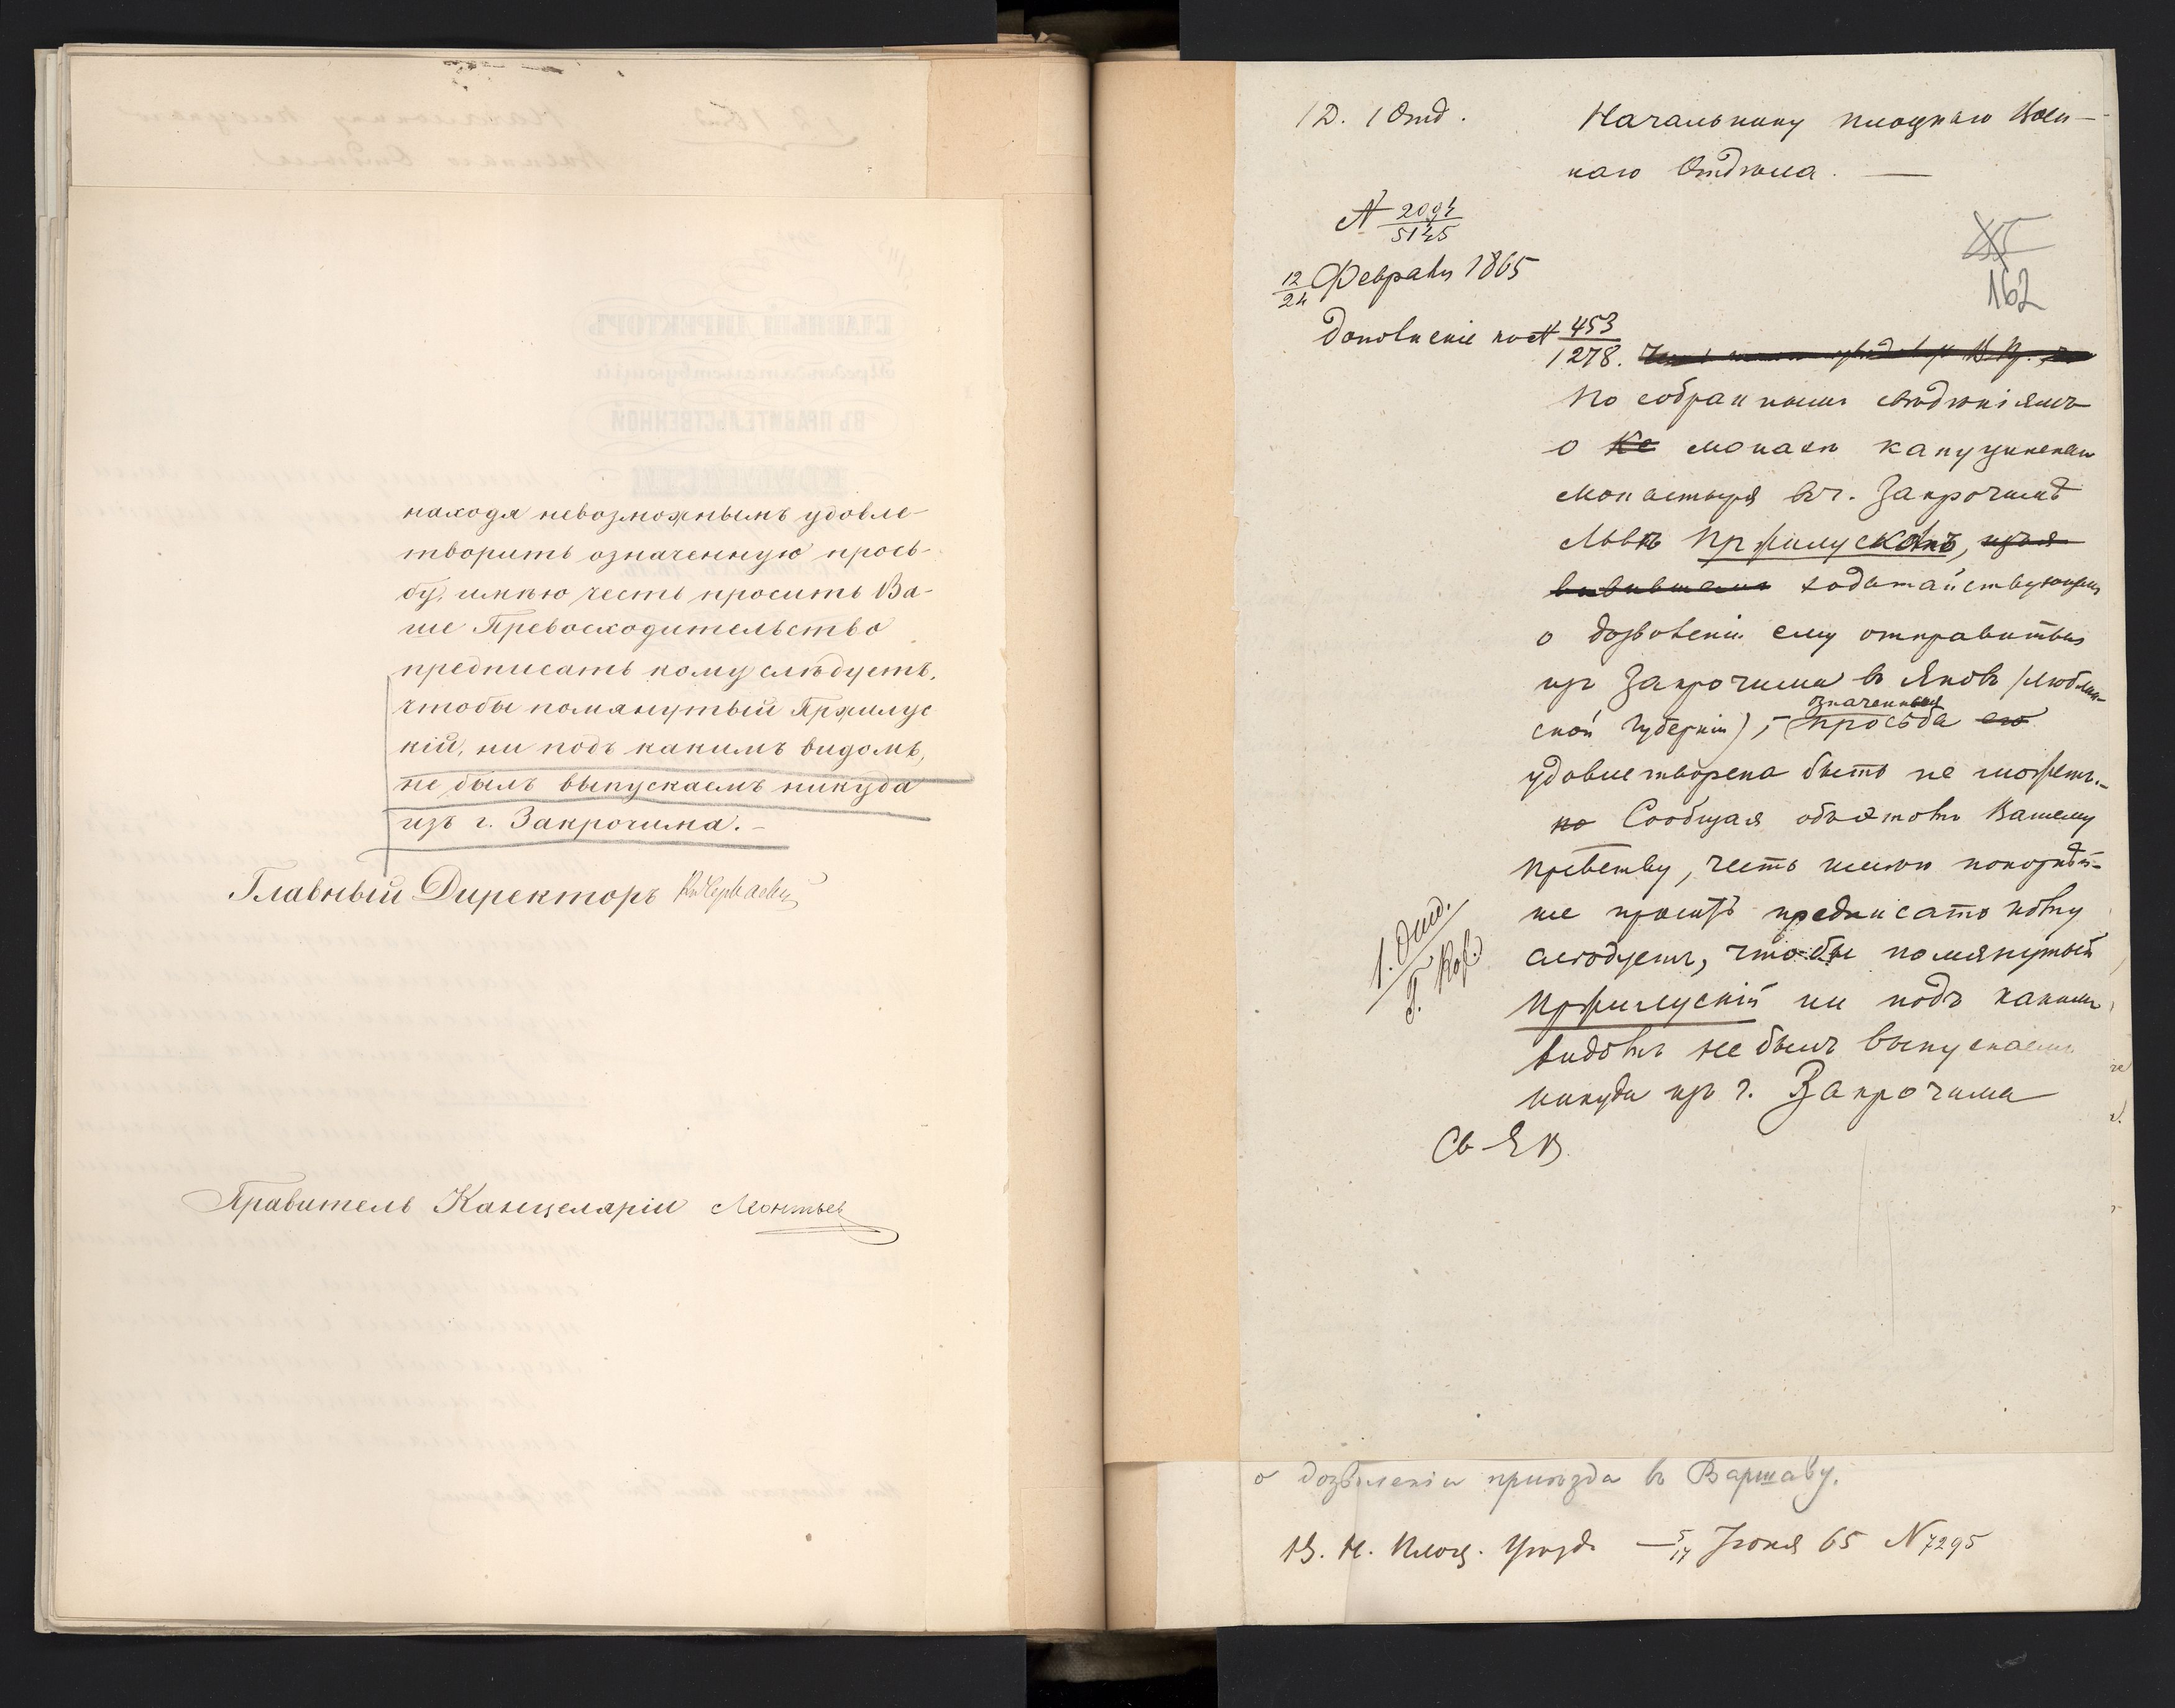 находя невозможнымъ удовле-
творить означенную прось-
бу, имѣю честь просить Ва-
ше Превосходительство
предписать кому слѣдуетъ,
чтобы помянутый Пржилус
кій, ни подъ какимъ видомъ,
не былъ выпускаемъ никуда
изъ г. Закрочима.-
Главный Директоръ
Правитель Канцеляріи Леонтьев
1 Д. 1 Отд.
Начальнику плоцкаго Воен-
наго Отдѣла. —
№ 2094/5145
12/24 Февраля 1865
162
дополненіе къ № 453/1278.
По собраннымъ свѣдѣніямъ
о монахѣ капуцинскаго
монастыря въ г. Закрочимѣ
Львѣ Пржилускомъ,
ходатайствующемъ
о дозволеніи ему отправиться
изъ Закрочима въ Яновъ (Люблин-
ской Губерніи), означенная просьба его
удовлетворена быть не можетъ.-
но Сообщая объ этомъ Вашему
Превству, честь имѣю покорнѣй-
ше просить предписать кому
слѣдуетъ, что-бы помянутый
Пржилускій ни подъ какимъ
видомъ не былъ выпускаемъ
никуда изъ г. Закрочима
1. Отд.
о дозволеніи пріѣзда въ Варшаву.
В. Н. Плоц. Уѣзда — 5/17 Іюня 65 N 7295